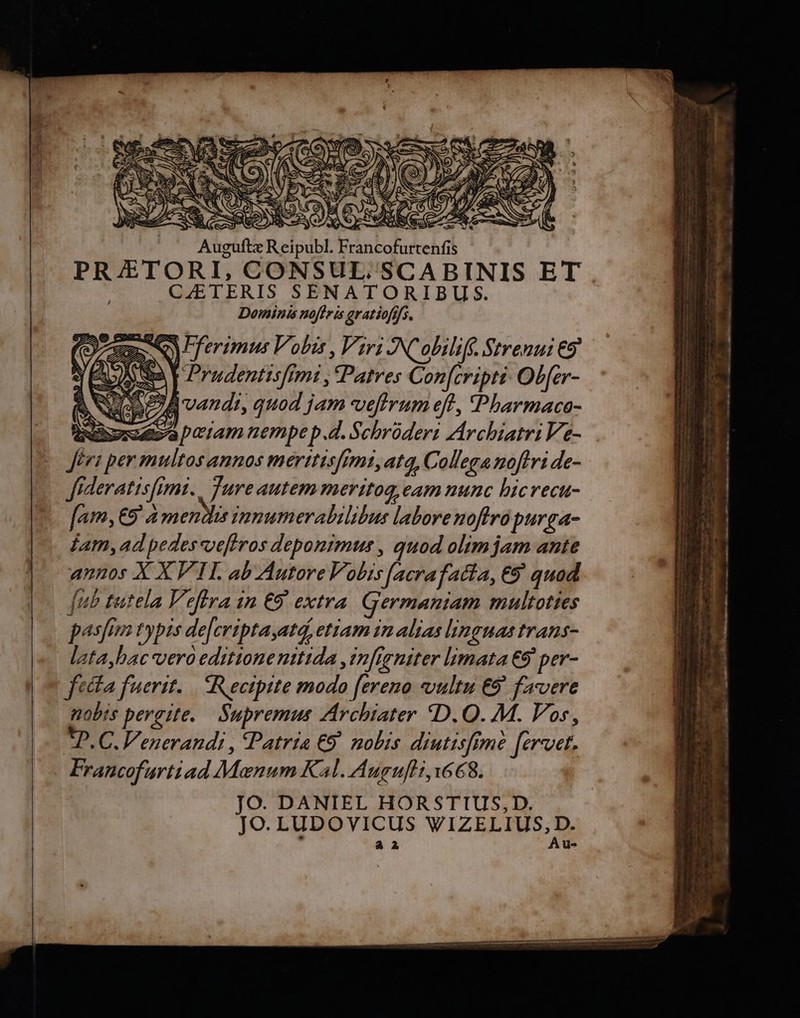 Auguſtæ Reipubl. Francofurtenſis
PRÆTORI, CONSUL. SCABINIS ET
CÆTERIS SENATORIBUS.
Dominis noſtris gratioſiſs.
Fferimus Vobis, Viri Nobiliſſ. Strenui &
Prudentisſimi, Patres Conſcripti Obſer-
vandi, quod jam veſtrum eſt, Pharmaco-
pœiam nempe p.d. Schröderi Archiatri Ve-
ſtri per multos annos meritisſimi, atq, Collega noſtri de-
ſideratisſimi. Jure autem meritoq, eam nunc hic recu-
ſam, & à mendis innumerabilibus labore noſtro purga-
tam, ad pedes veſtros deponimus, quod olim jam ante
annos XXVII. ab Autore Vobis ſacra facta, & quod
ſub tutela Veſtra in & extra Germaniam multoties
pasſim typis deſcripta, atq, etiam in alias linguas trans-
lata, hac verò editione nitida, inſigniter limata & per-
fecta fuerit. Recipite modo ſereno vultu & favere
nobis pergite. Supremus Archiater D.O.M. Vos,
P.C. Venerandi, Patriæ & nobis diutisſimè ſervet.
Francofurti ad Mœnum Kal. Auguſti, 1668.
JO. DANIEL HORSTIUS, D.
JO. LUDOVICUS WIZELIUS, D.
a 2 Au-